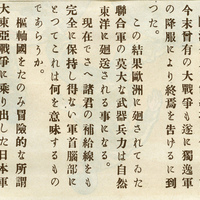 今末曾有の大戰爭も遂に獨逸軍
の降服により終焉を告げるに到
つた。
この結果歐洲に廻されてゐた
聯合軍の莫大な武器兵力は自然
東洋に廻送される事になる。
現在でさへ諸君の補給線をも
完全に保持し得ない軍首腦部に
とつてこれは何を意味するもの
であらうか。
樞軸國をたのみ冒險的な所謂
大東亞戰爭に乘り出した日本軍